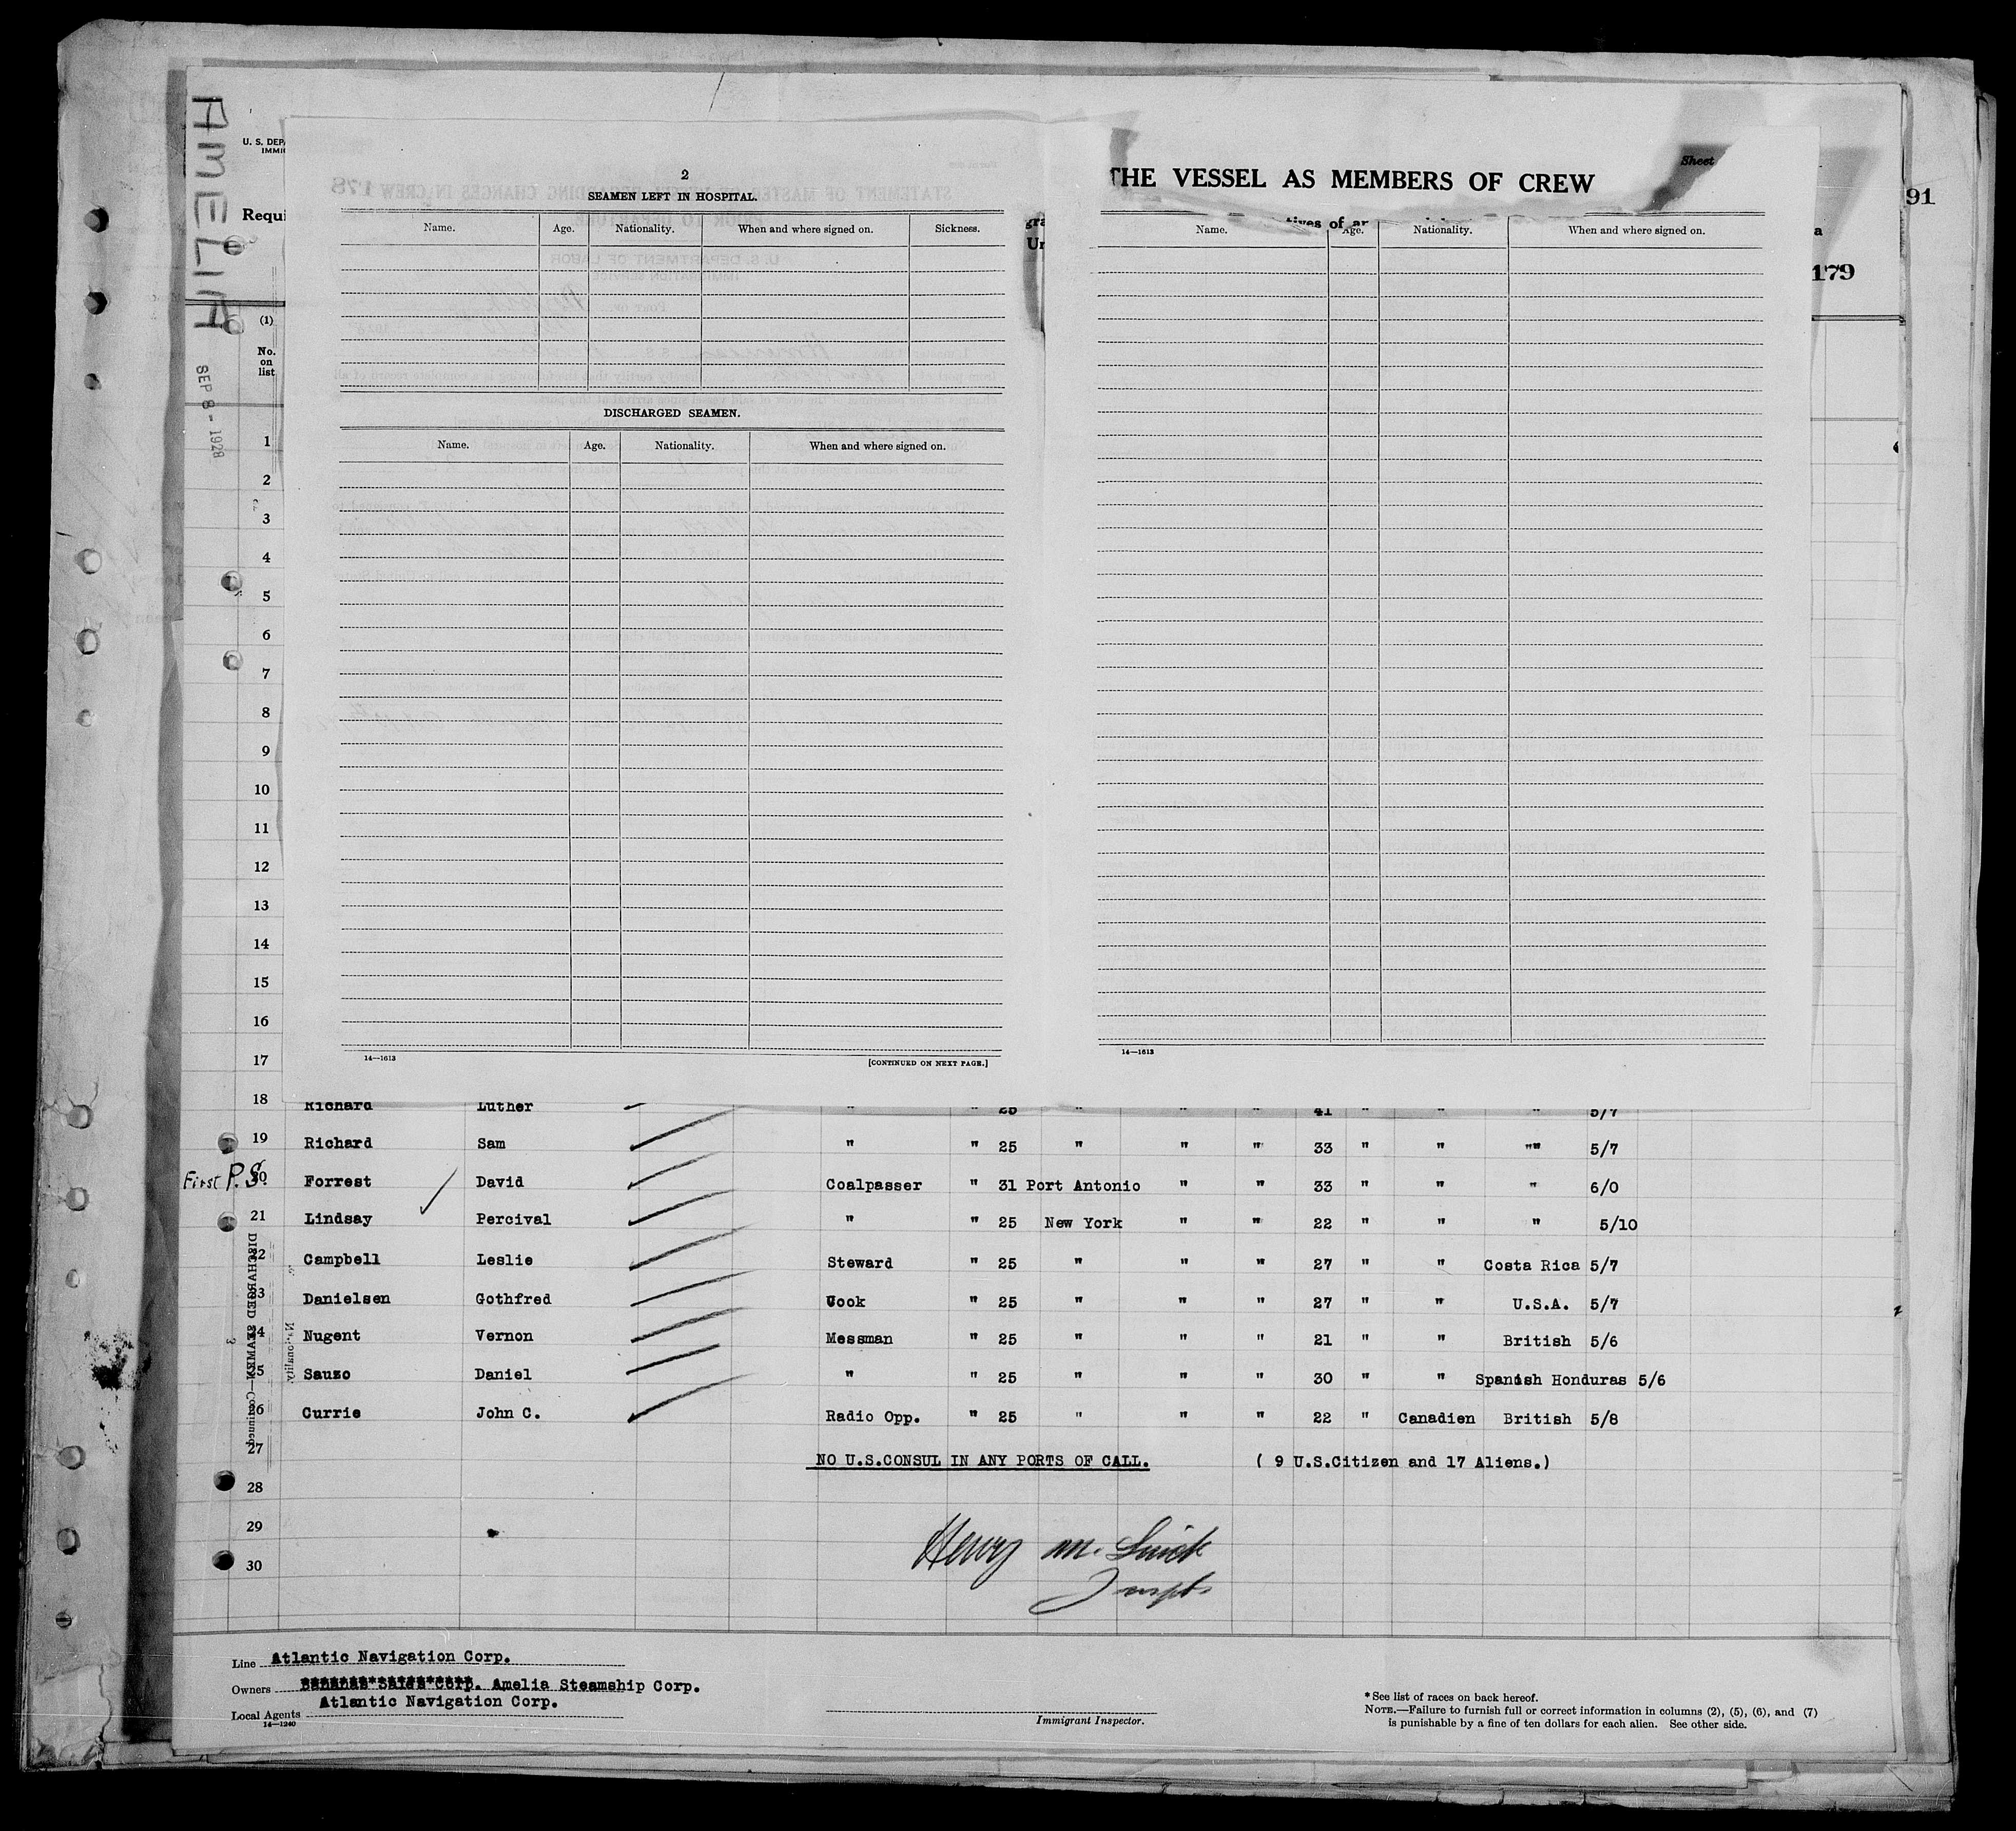 AMELIA
SEP 8 - 1928
U. S. DEP
IMMI
Requi
THE VESSEL AS MEMBERS OF CREW
Sheet
91
179
tives of
(1)
No.
on
list
2
SEAMEN LEFT IN HOSPITAL.
Name. Age. Nationality. When and where signed on. Sickness.
DISCHARGED SEAMEN.
Name. Age. Nationality. When and where signed on.
14—1613 [CONTINUED ON NEXT PAGE.]
Name. Age. Nationality. When and where signed on.
14—1613
1
2
3
4
5
6
7
8
9
10
11
12
13
14
15
16
17
18 Richard Luther " " 25 " " " 41 " " " 5/7
19 Richard Sam " " 25 " " " 33 " " "" 5/7
First P.S. 20 Forrest David Coalpasser " 31 Port Antonio " " 33 " " " 6/0
21 Lindsay Percival " " 25 New York " " 22 " " " 5/10
22 Campbell Leslie Steward " 25 " " " 27 " " Costa Rica 5/7
23 Danielsen Gothfred Cook " 25 " " " 27 " " U.S.A. 5/7
24 Nugent Vernon Messman " 25 " " " 21 " " British 5/6
25 Sauzo Daniel " " 25 " " " 30 " " Spanish Honduras 5/6
26 Currie John C. Radio Opp. " 25 " " " 22 " Canadien British 5/8
27 NO U.S.CONSUL IN ANY PORTS OF CALL. ( 9 U.S.Citizen and 17 Aliens.)
28
29
30
DISCHARGED SEAMEN—Continued
3
Nationality.
Henry M.
Line Atlantic Navigation Corp.
Owners Bahamas Sales Corp. Amelia Steamship Corp.
Local Agents Atlantic Navigation Corp.
14—1240
Immigrant Inspector.
* See list of races on back hereof.
NOTE.—Failure to furnish full or correct information in columns (2), (5), (6), and (7)
is punishable by a fine of ten dollars for each alien. See other side.